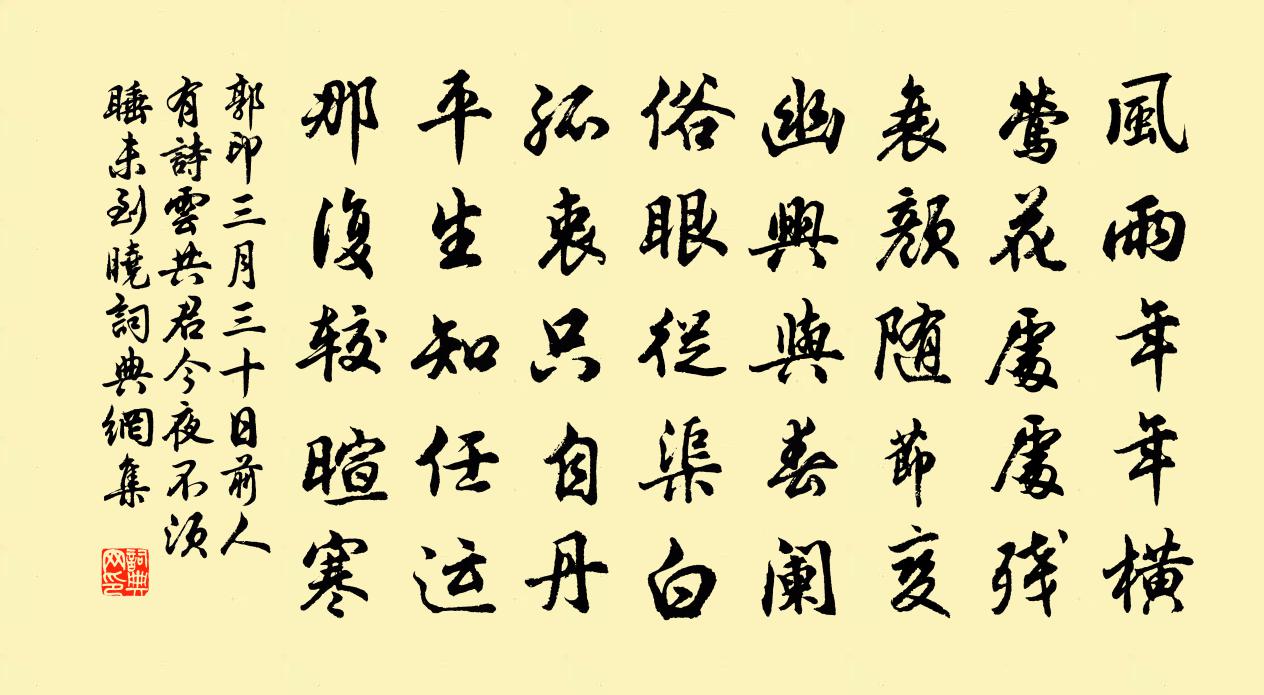 風雨年年橫
鶯花處處残
衰顏随節变
幽興與春阑
俗眼從渠白
孤衷只自丹
平生知任运
那復较暄寒
郭印三月三十日前人
有詩雲共君今夜不須
睡未到曉詞典網集
詞典
网印